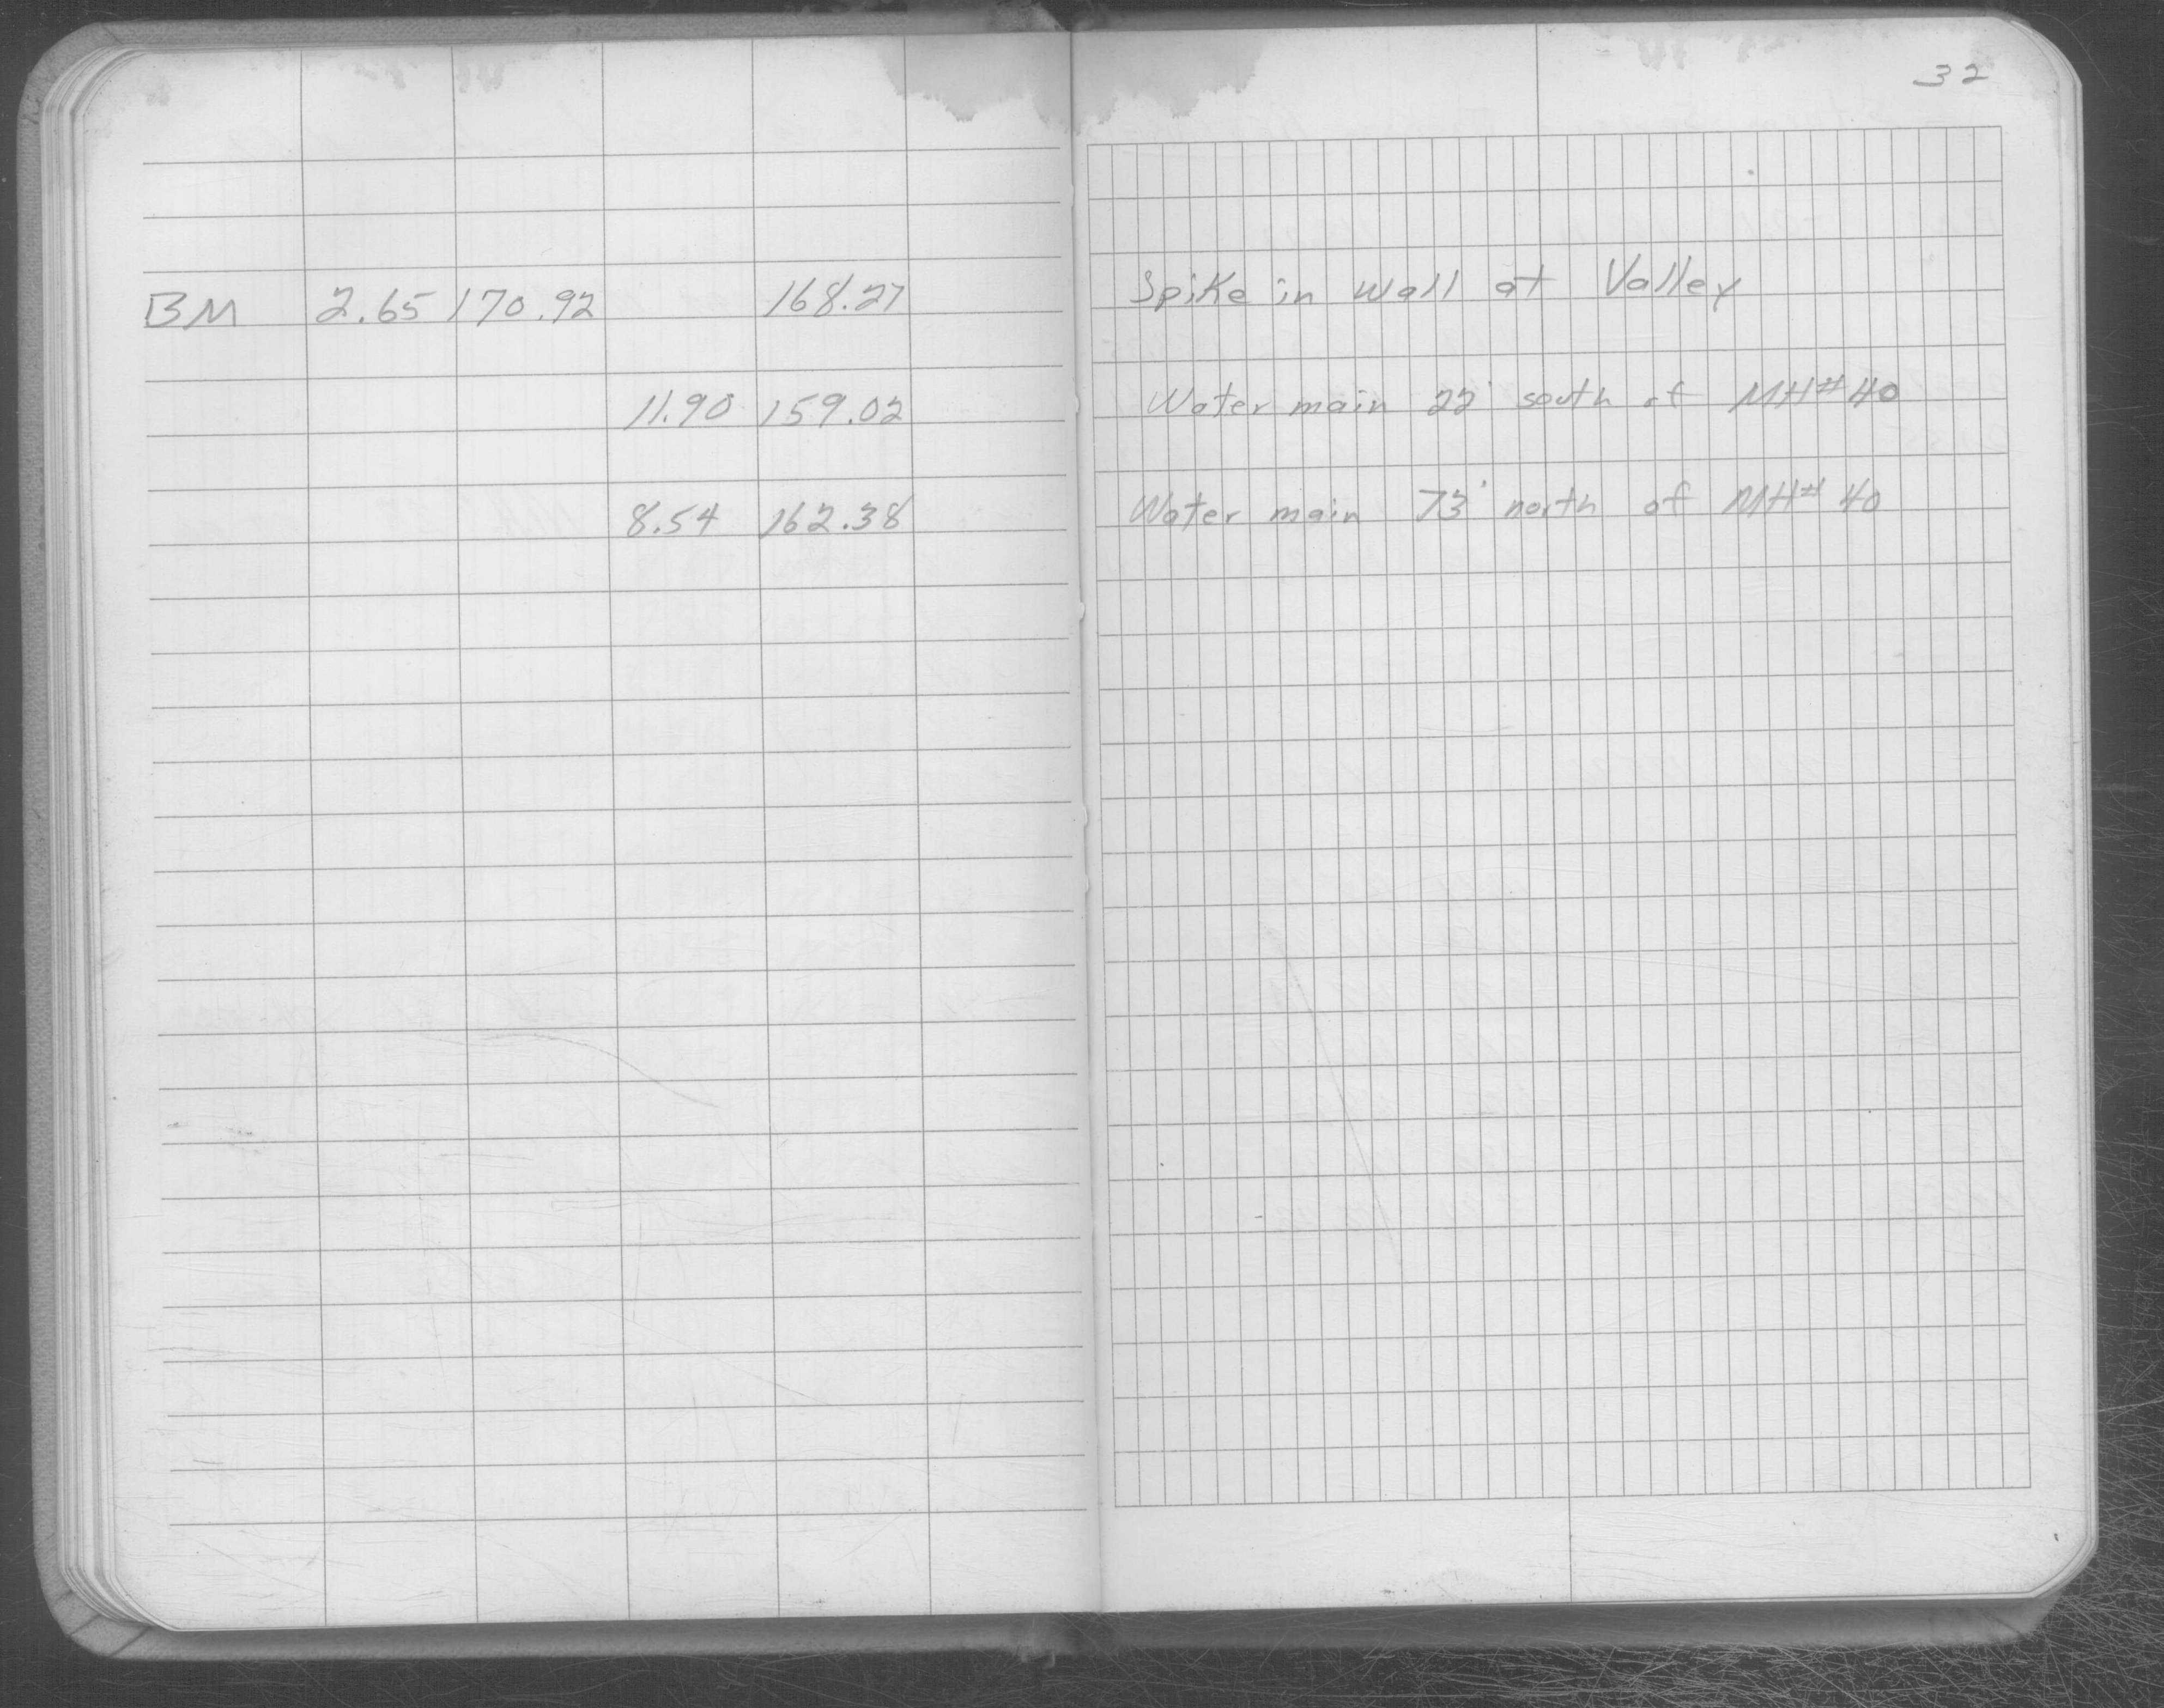 32
BM 2.65 170.92 168.27 Spike in Wall at Valley
11.90 159.02 Water main 22' south of MH# 40
8.54 162.38 Water main 73' north of MH# 40